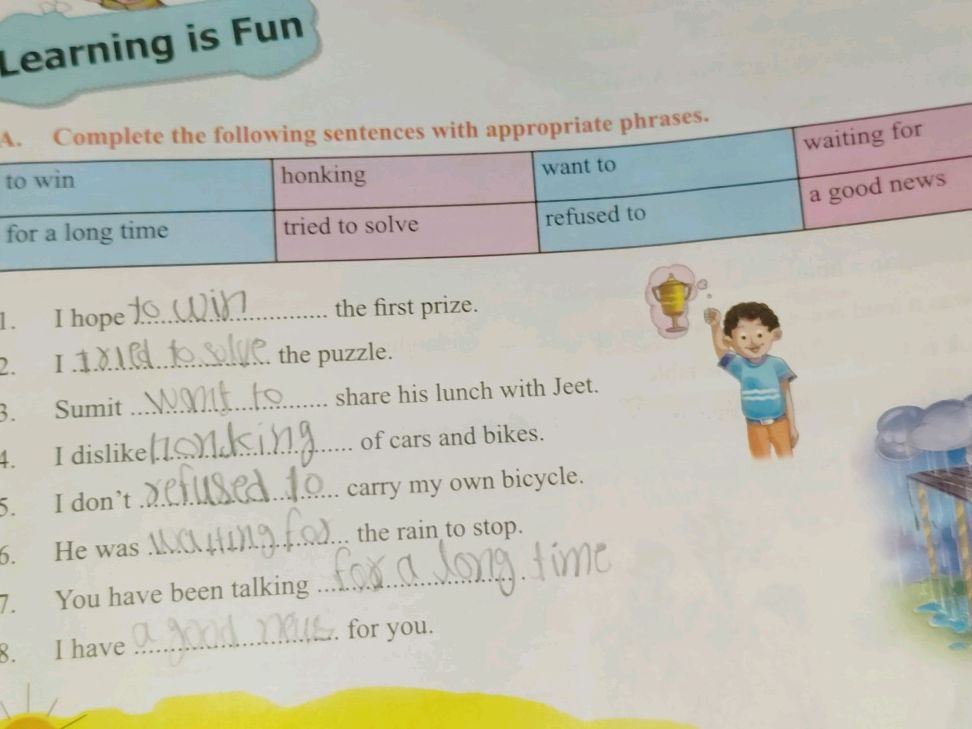 Learning is Fun
A. Complete the following sentences with appropriate phrases.
to win honking want to waiting for
for a long time tried to solve refused to a good news
1. I hope to win the first prize.
2. I tried to solve the puzzle.
3. Sumit want to share his lunch with Jeet.
4. I dislike honking of cars and bikes.
5. I don't refused to carry my own bicycle.
6. He was waiting for the rain to stop.
7. You have been talking for a long time.
8. I have a good news for you.